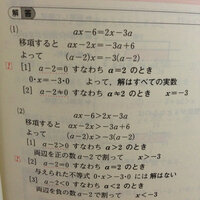 解答
(1) ax-6=2x-3a
移項すると ax-2x=-3a+6
よって (a-2)x=-3(a-2)
[1] a-2=0 すなわち a=2 のとき
0・x=-3・0 よって、解はすべての実数
[2] a-2≠0 すなわち a≠2 のとき x=-3
(2) ax-6>2x-3a
移項すると ax-2x>-3a+6
よって (a-2)x>-3(a-2)
[1] a-2>0 すなわち a>2 のとき
両辺を正の数 a-2 で割って x>-3
[2] a-2=0 すなわち a=2 のとき
与えられた不等式 0・x>-3・0 には解はない
[3] a-2<0 すなわち a<2 のとき
両辺を負の数 a-2 で割って x<-3